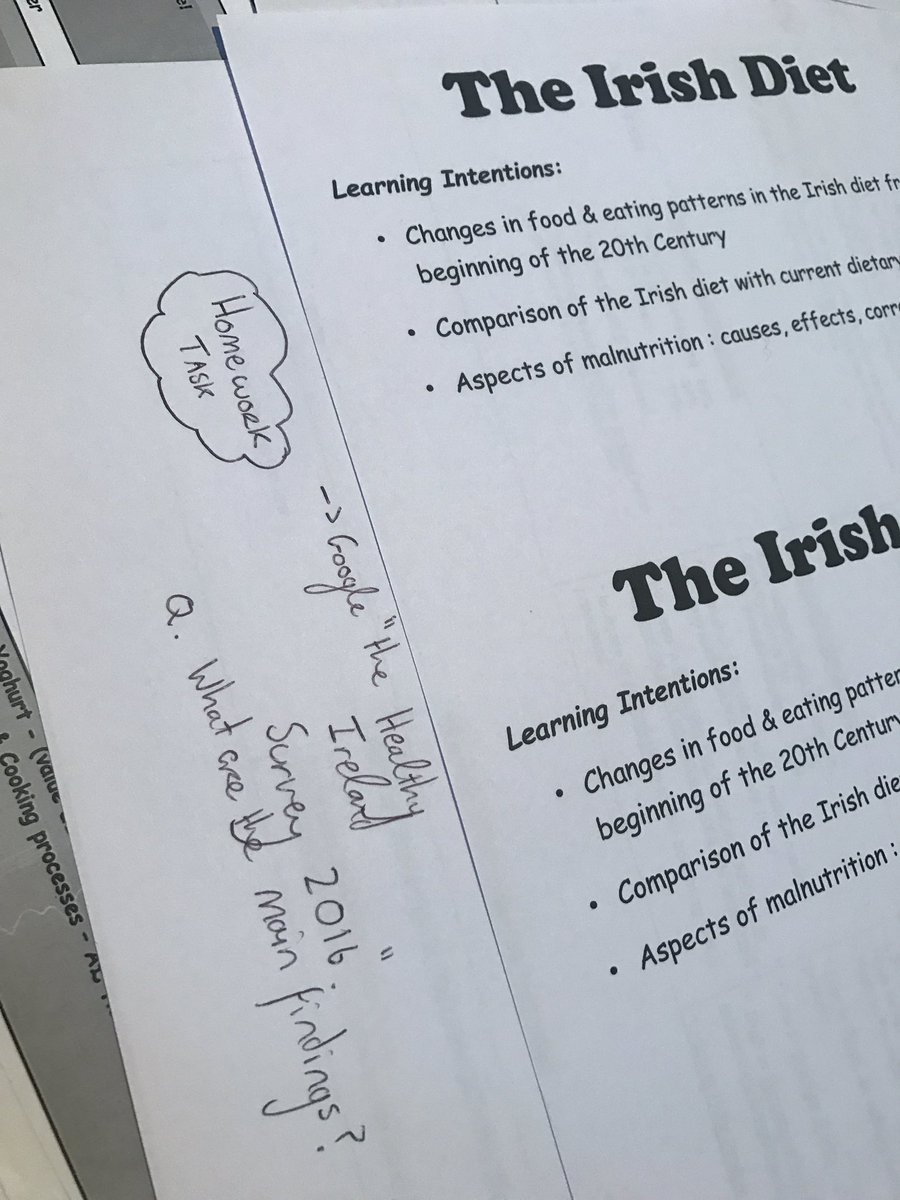 The Irish Diet
Learning Intentions:
• Changes in food & eating patterns in the Irish diet
beginning of the 20th Century
• Comparison of the Irish diet with current dietary
• Aspects of malnutrition : causes, effects,
Homework
TASK
-> Google "the Healthy
Ireland
Survey 2016."
Q. What are the main findings?
The Irish
Learning Intentions:
• Changes in food & eating
beginning of the 20th Century
• Comparison of the Irish
• Aspects of malnutrition :
Yoghurt -
& Cooking processes -